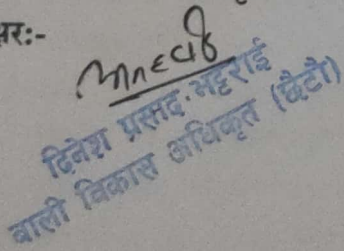 तर:-
दिनेश प्रसाद भट्टराई
बाली विकास अधिकृत (छैटौं)